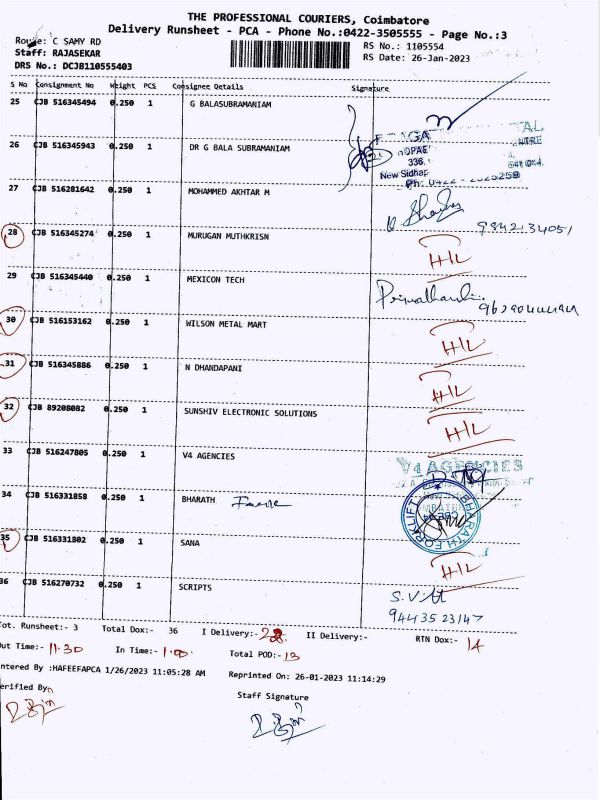 THE PROFESSIONAL COURIERS, Coimbatore
Delivery Runsheet - PCA - Phone No.:0422-3505555 - Page No.:3
Route: C SAMY RD
RS No.: 1105554
Staff: RAJASEKAR
RS Date: 26-Jan-2023
DRS No.: DCJB110555403
S No Consignment No Weight PCS Consignee Details Signature
25 CJB 516345494 0.250 1 G BALASUBRAMANIAM
26 CJB 516345943 0.250 1 DR G BALA SUBRAMANIAM
336
New Sidhap
27 CJB 516281642 0.250 1 MOHAMMED AKHTAR M
9842134051
28 CJB 516345274 0.250 1 MURUGAN MUTHKRISN H/L
29 CJB 516345440 0.250 1 MEXICON TECH
30 CJB 516153162 0.250 1 WILSON METAL MART H/L
31 CJB 516345886 0.250 1 N DHANDAPANI H/L
32 CJB 89208082 0.250 1 SUNSHIV ELECTRONIC SOLUTIONS H/L
33 CJB 516247805 0.250 1 V4 AGENCIES V4 AGENCIES
34 CJB 516331858 0.250 1 BHARATH BHARATH FORKLIFT
35 CJB 516331802 0.250 1 SANA H/L
36 CJB 516270732 0.250 1 SCRIPTS
9443523147
Tot. Runsheet:- 3 Total Dox:- 36 I Delivery:- II Delivery:- RTN Dox:- 14
Out Time:- 11.30 In Time:- 1.00 Total POD:- 13
Entered By :HAFEEFAPCA 1/26/2023 11:05:28 AM Reprinted On: 26-01-2023 11:14:29
Verified By
Staff Signature